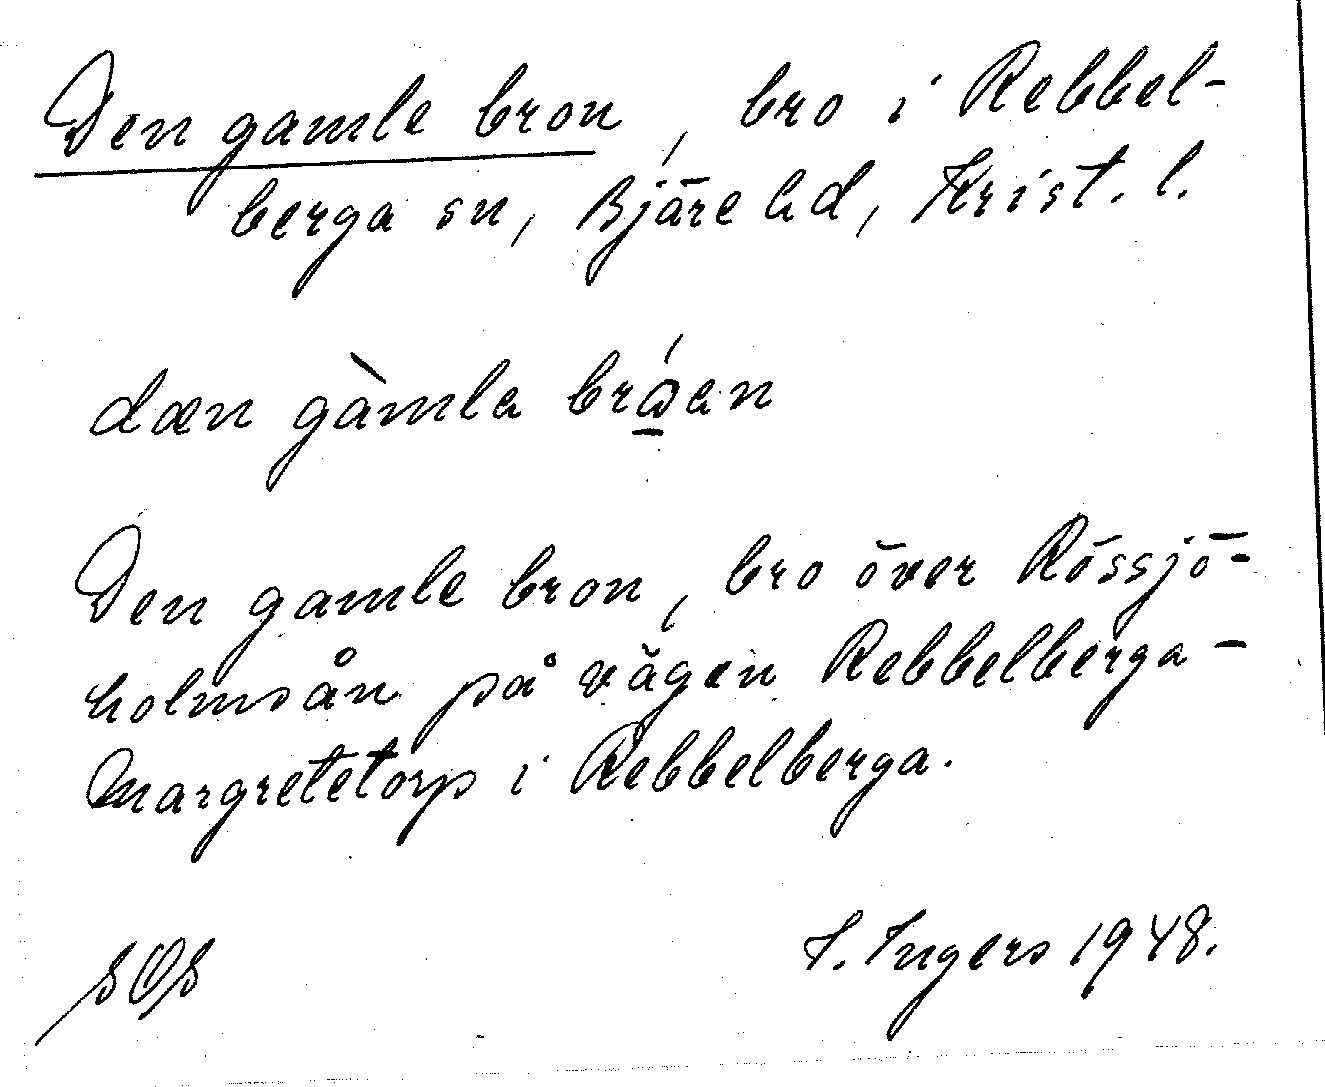 Den gamle bron, bro i Rebbel-
berga sn, Bjäre hd, Krist. l.
dæn gàmla bróen
Den gamle bron, bro över Rössjö-
holmsån på vägen Rebbelberga-
Margretetorp i Rebbelberga.
I. Ingers 1948.
SOS